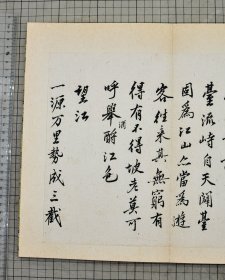 臺流峙自天開臺
因為江山亦當為遊
客往來其無窮有
得有不得坡老莫可
呼舉酹江色
酒
望江
一源万里勢成三截